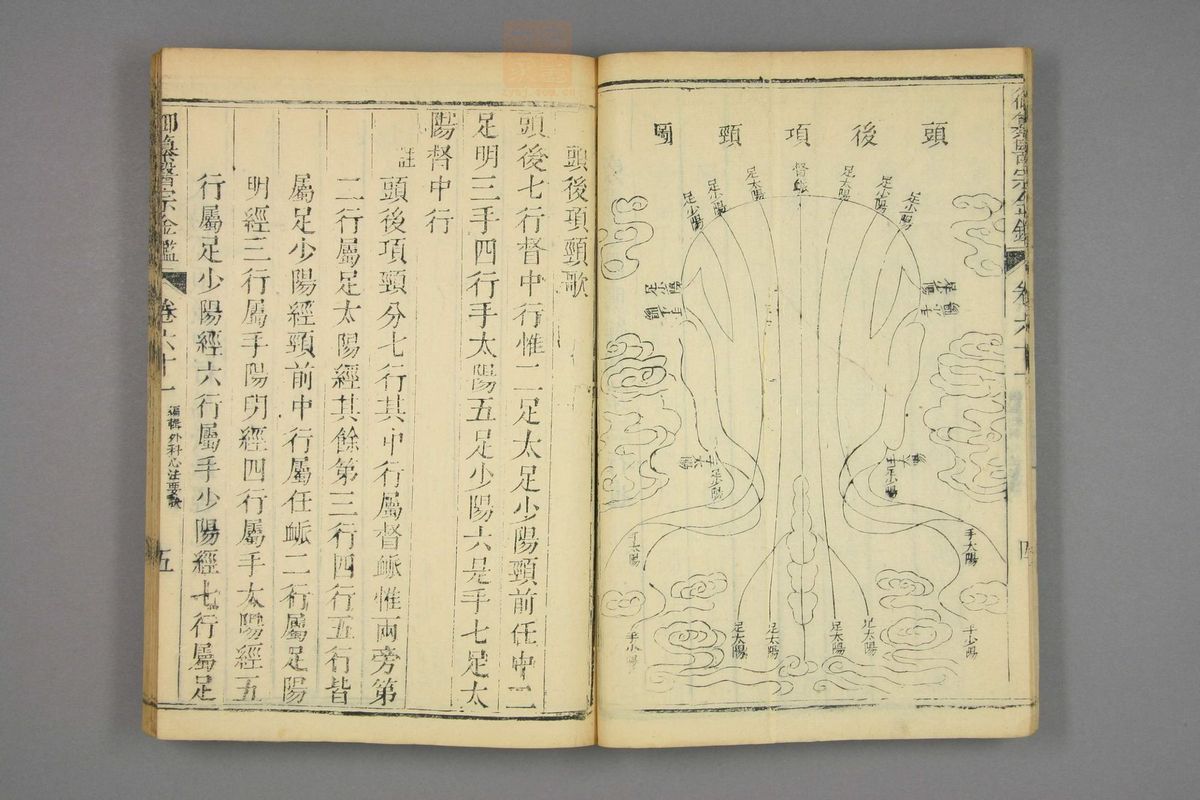 頭後項頸圖
足少陽
足少陽
足太陽
督脈
足太陽
足少陽
足少陽
足少陽
手少陽
手太陽
足少陽
足少陽
手太陽
手太陽
手少陽
手少陽
足太陽
足太陽
足太陽
足太陽
卷六十一
四
頭後項頸歌
頭後七行督中行惟二足太足少陽頸前任中二
足明三手四行手太陽五足少陽六是手七足太
陽督中行
註
頭後項頸分七行其中行屬督脈惟兩旁第
二行屬足太陽經其餘第三行四行五行皆
屬足少陽經頸前中行屬任脈二行屬足陽
明經三行屬手陽明經四行屬手太陽經五
行屬足少陽經六行屬手少陽經七行屬足
御纂醫宗金鑑
卷六十一
編輯外科心法要訣
五